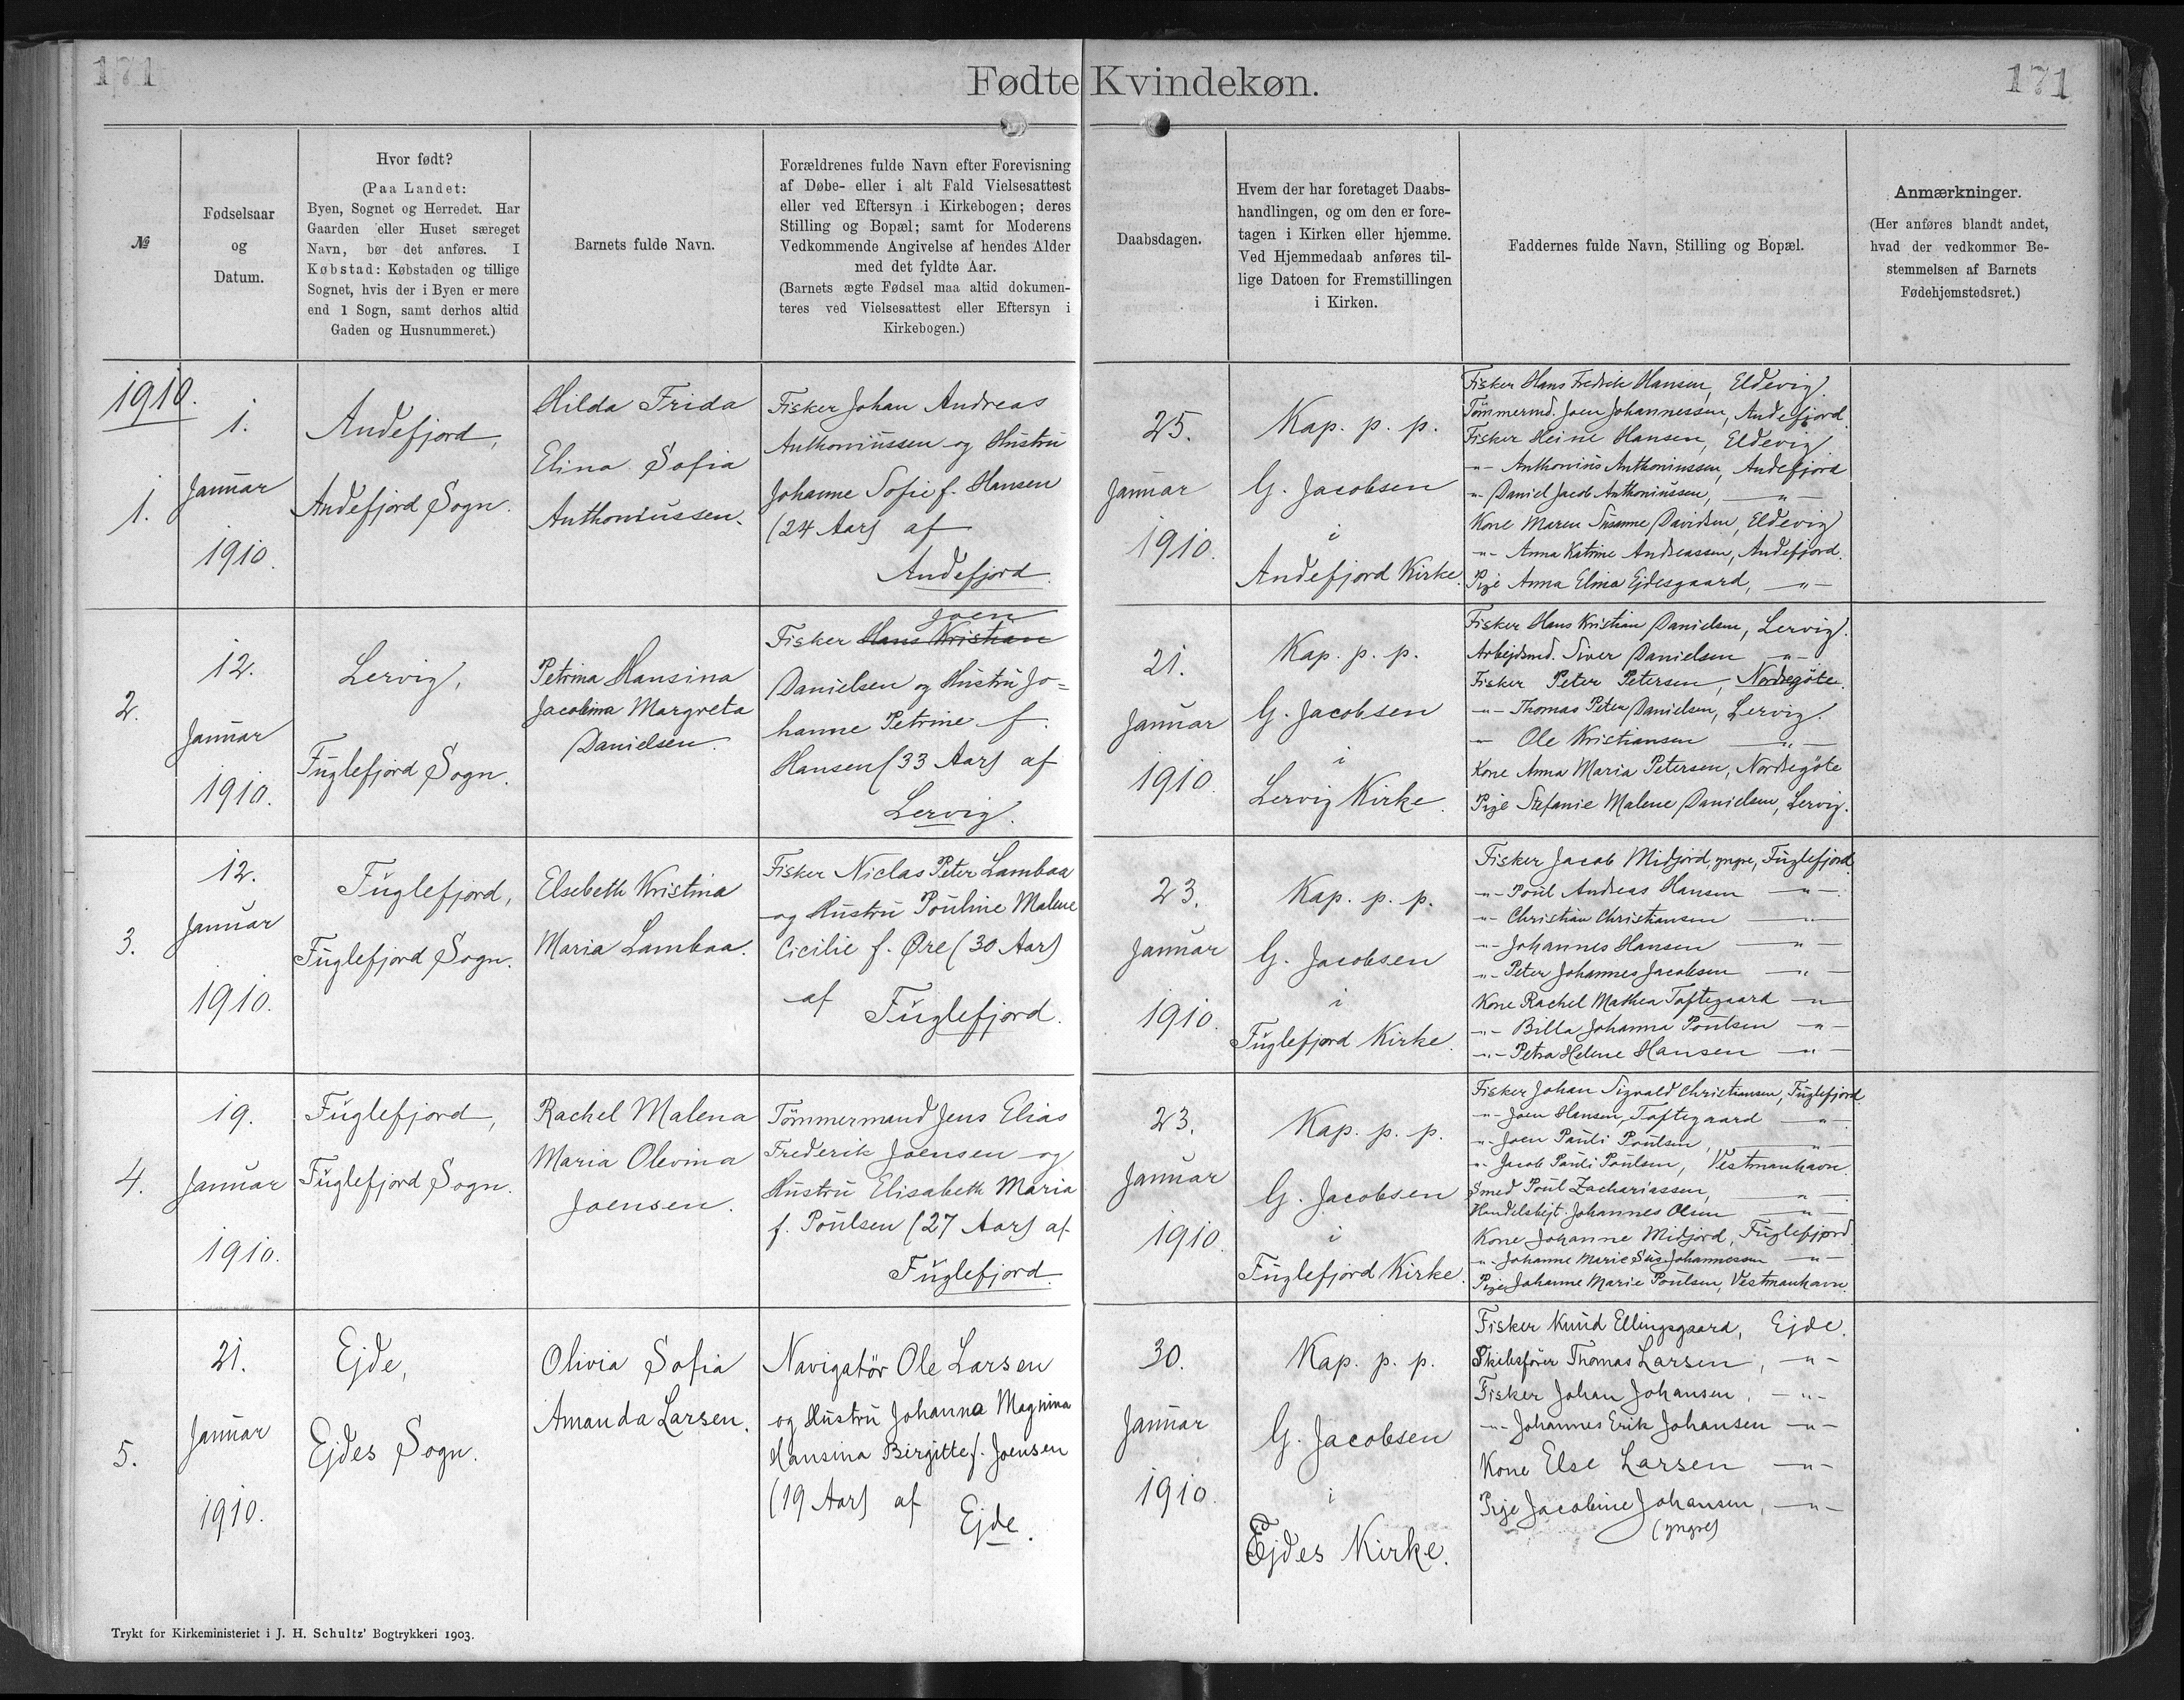 171
Fødte Kvindekøn.
171
№
Fødselsaar
og
Datum.
Hvor født?
(Paa Landet:
Byen, Sognet og Herredet. Har
Gaarden eller Huset særeget
Navn, bør det anføres. I
Købstad: Købstaden og tillige
Sognet, hvis der i Byen er mere
end 1 Sogn, samt derhos altid
Gaden og Husnummeret.)
Barnets fulde Navn.
Forældrenes fulde Navn efter Forevisning
af Døbe- eller i alt Fald Vielsesattest
eller ved Eftersyn i Kirkebogen; deres
Stilling og Bopæl; samt for Moderens
Vedkommende Angivelse af hendes Alder
med det fyldte Aar.
(Barnets ægte Fødsel maa altid dokumen-
teres ved Vielsesattest eller Eftersyn i
Kirkebogen.)
Daabsdagen.
Hvem der har foretaget Daabs-
handlingen, og om den er fore-
tagen i Kirken eller hjemme.
Ved Hjemmedaab anføres til-
lige Datoen for Fremstillingen
i Kirken.
Faddernes fulde Navn, Stilling og Bopæl.
Anmærkninger.
(Her anføres blandt andet,
hvad der vedkommer Be-
stemmelsen af Barnets
Fødehjemstedsret.)
1910.
1.
1.
Januar
1910.
Andefjord,
Andefjord Sogn.
Hilda Frida
Elina Sofia
Anthoniussen.
Fisker Johan Andreas
Anthoniussen og Hustru
Johanne Sofie f. Hansen
(24 Aar) af
Andefjord.
25.
Januar
1910.
Kap. p. p.
G. Jacobsen
i
Andefjord Kirke.
Fisker Hans Fredrik Hansen, Eldevig.
Tömmermd. Joen Johannessen, Andefjord.
Fisker Heine Hansen, Eldevig
-"- Anthonius Anthoniussen, Andefjord
-"- Daniel Jacob Anthoniussen, -"-
Kone Maren Susanne Davidsen, Eldevig
-"- Anna Katrine Andreassen, Andefjord.
Pige Anna Elina Ejdesgaard, -"-
2.
12.
Januar
1910.
Lervig,
Fuglefjord Sogn.
Petrina Hansina
Jacobina Margreta
Danielsen.
Joen
Fisker Hans Kristian
Danielsen og Hustru Jo=
hanne Petrine f.
Hansen (33 Aar) af
Lervig.
21.
Januar
1910.
Kap. p. p.
G. Jacobsen
i
Lervig Kirke.
Fisker Hans Kristian Danielsen, Lervig.
Arbejdsmd. Siver Danielsen -"-
Fisker Peter Petersen, Nordregöte.
-"- Thomas Peter Danielsen, Lervig.
-"- Ole Kristiansen -"-
Kone Anna Maria Petersen, Nordregöte
Pige Stefanie Malene Danielsen, Lervig.
3.
12.
Januar
1910.
Fuglefjord,
Fuglefjord Sogn.
Elsebeth Kristina
Maria Lambaa.
Fisker Niclas Peter Lambaa
og Hustru Pouline Malene
Cicilie f. Øre (30 Aar)
af Fuglefjord.
23.
Januar
1910.
Kap. p. p.
G. Jacobsen
i
Fuglefjord Kirke.
Fisker Jacob Midjord, yngre, Fuglefjord.
-"- Poul Andreas Hansen -"-
-"- Christian Christiansen -"-
-"- Johannes Hansen -"-
-"- Peter Johannes Jacobsen -"-
Kone Rachel Mathea Toftegaard -"-
-"- Billa Johanna Poulsen -"-
-"- Petra Helene Hansen -"-
4.
19.
Januar
1910.
Fuglefjord,
Fuglefjord Sogn.
Rachel Malena
Maria Olevina
Joensen.
Tömmermand Jens Elias
Frederik Joensen og
Hustru Elisabeth Maria
f. Poulsen (27 Aar) af
Fuglefjord.
23.
Januar
1910.
Kap. p. p.
G. Jacobsen
i
Fuglefjord Kirke.
Fisker Johan Sigvald Christiansen, Fuglefjord.
-"- Joen Hansen, Toftegaard -"-
-"- Joen Pauli Poulsen, -"-
-"- Jacob Pauli Poulsen, Vestmanhavn
Smed Poul Zachariassen, -"-
Handelsbejt. Johannes Olsen -"-
Kone Johanne Midjord, Fuglefjord
-"- Johanne Marie Sus. Johannessen -"-
Pige Johanne Marie Poulsen, Vestmanhavn.
5.
21.
Januar
1910.
Ejde,
Ejdes Sogn.
Olivia Sofia
Amanda Larsen.
Navigatör Ole Larsen
og Hustru Johanna Magnina
Hansina Birgitte f. Joensen
(19 Aar) af
Ejde.
30.
Januar
1910.
Kap. p. p.
G. Jacobsen
i
Ejdes Kirke.
Fisker Knud Ellingsgaard, Ejde.
Skibsförer Thomas Larsen, -"-
Fisker Johan Johansen, -"-
-"- Johannes Erik Johansen -"-
Kone Else Larsen -"-
Pige Jacobine Johansen, -"-
(yngre)
Trykt for Kirkeministeriet i J. H. Schultz' Bogtrykkeri 1903.